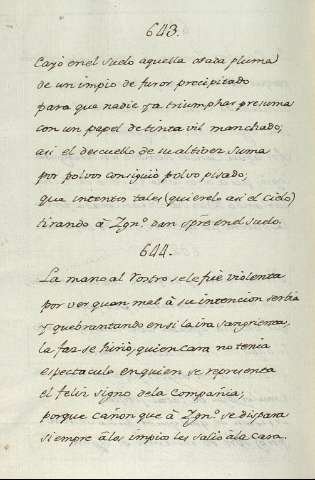 643.
Cayó en el suelo aquella osada pluma
de un impio de furor precipitado
para que nadie ya triumphar presuma
con un papel de tinta vil manchado;
asi el descuello de su altivez suma
por polvos consiguió polvo pisado;
que intentos tales (quierelo asi el cielo)
tirando à Ygnº. dan spre en el suelo.
644.
La mano al rostro se le fué violenta
por ver quan mal à su intencion servia
y quebrantando en si la ira sangrienta,
la faz se hirió, quien cara no tenia
espectaculo en quien se representa
el feliz signo de la Compañia;
porque cañon que à Ygnº. se dispara
siempre à los impios les salió à la cara.